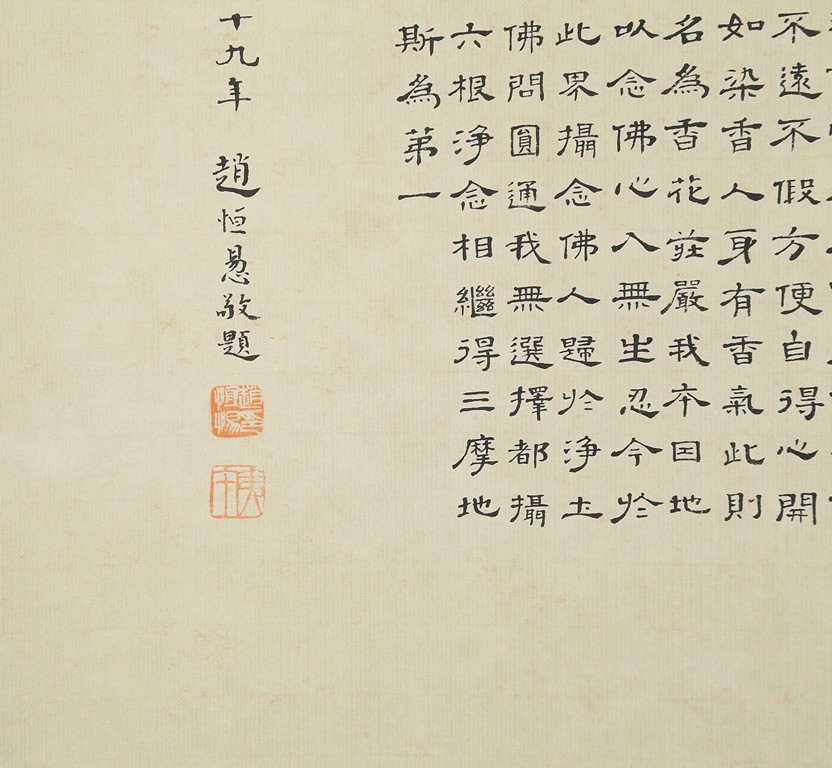 不遠不假方便自得心開
如染香人身有香氣此則
名為香花莊嚴我本因地
以念佛心入無生忍今於
此界攝念佛人歸於淨土
佛問圓通我無選擇都攝
六根淨念相繼得三摩地
斯為第一
十九年 趙恒惖敬題
趙印恒惕
庚午